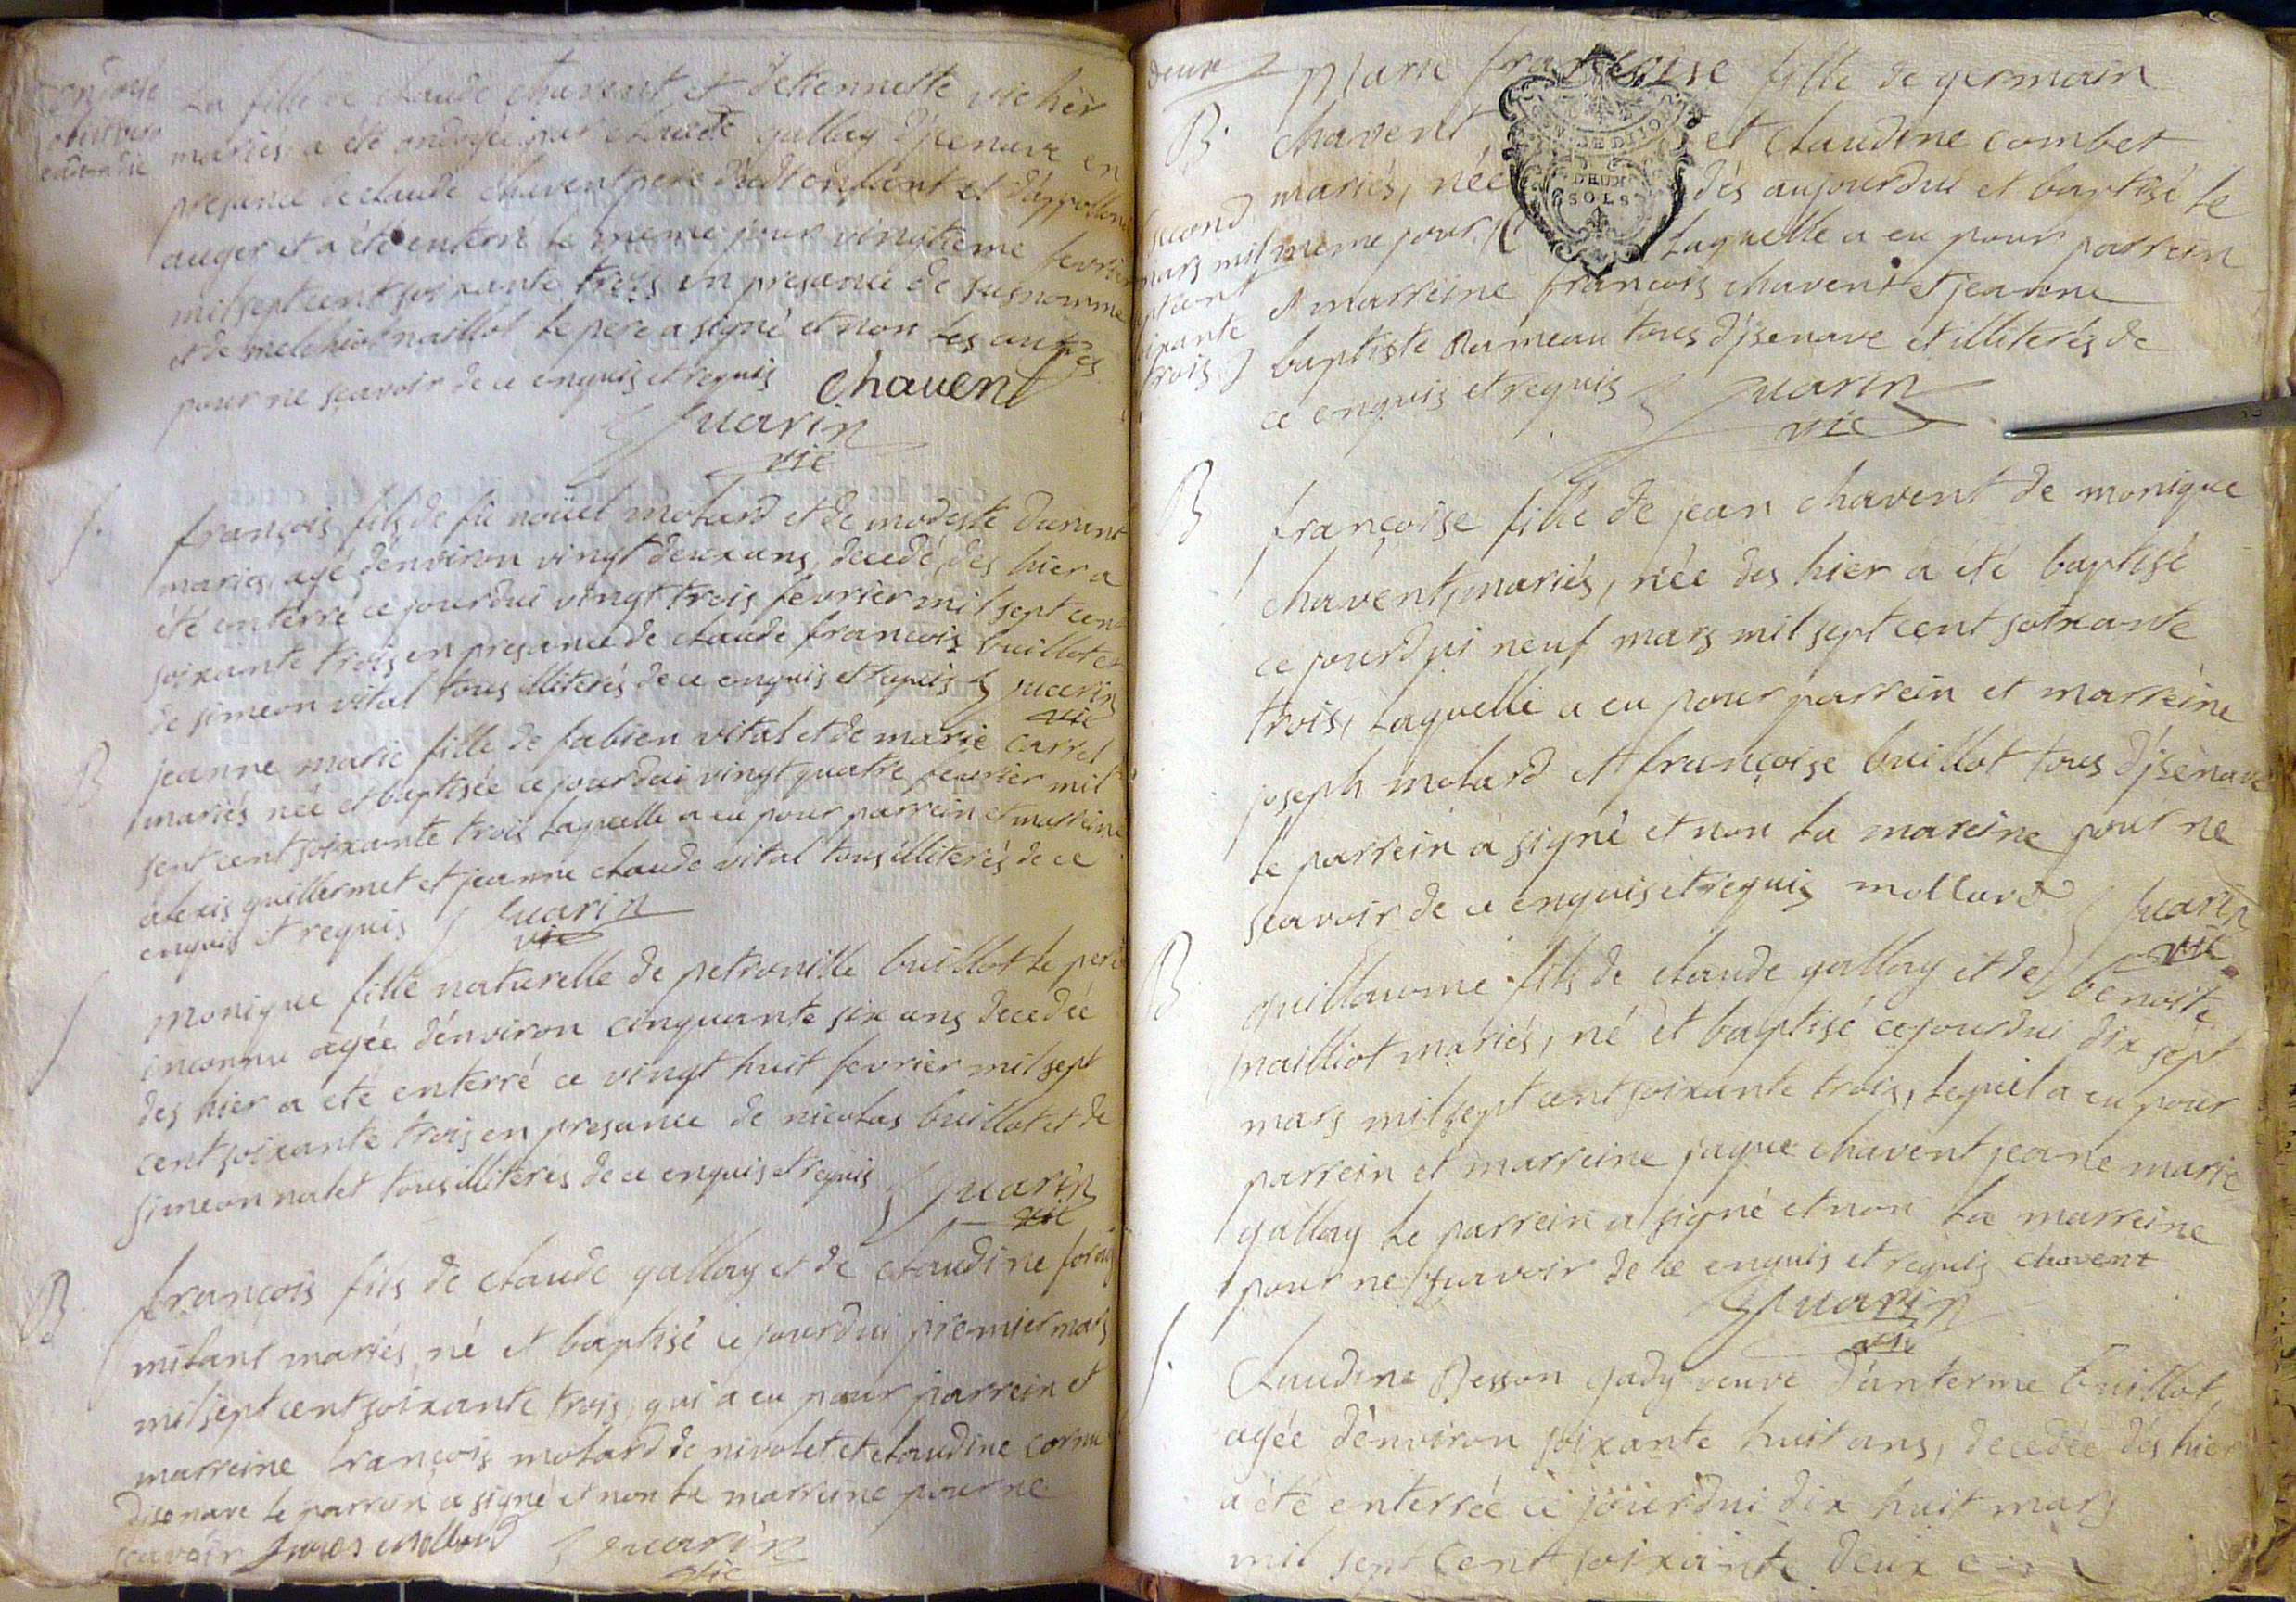 La fille de claude chavent et d'etiennette vichér
mariés a été ondoyée par claude gallay d'isenave en
presance de claude chavent pere dudt enfant et d'appollonie
auger et a été enterré le meme jour vingtieme fevrier
mil sept cent soixante trois en presance de susnommé
et de melchiol naillot le pere a signé et non les autres
pour ne sçavoir de ce enquis et requis chavent
Guarin
vic
S. françois fils de fû noüel molard et de modeste durant
mariés, agé d'environ vingt deux ans, decedé des hier a
été enterré ce jourdui vingt trois fevrier mil sept cent
soixante trois en presance de claude françois buillot et
de simeon vital tous illiterés de ce enquis et requis Guarin
vic
B jeanne marie fille de fabien vital et de marie carrel
mariés née et baptisée ce jourdui vingt quatre fevrier mil
sept cent soixante trois laquelle a eu pour parrein et marreine
alexis guillermet et jeanne claude vital tous illiterés de ce
enquis et requis Guarin
vic
S monique fille naturelle de petronille buillot le pere
inconnu agée d'environ cinquante six ans decedée
des hier a eté enterré ce vingt huit fevrier mil sept
cent soixante trois en presance de nicolas buillot et de
simeon nalet tous illiterés de ce enquis et requis
Guarin
vic
B françois fils de claude gallay et de claudine
milant mariés né et baptisé ce jourdui premier mars
mil sept cent soixante trois, qui a eu pour parrein et
marreine françois molard de nivolet et claudine cornu
disenave le parrein a signé et non la marreine pour ne
scavoir Guarin
vic
deux
Marie françoise fille de germain
B. chavent et claudine combet
mariés, née dés aujourdui et baptisé le
second
mars mil meme jour laquelle a eu pour parrein
sept cent
soixante et marreine françois chavent et jeanne
trois baptiste Rameau tous d'jsenave et illiterés de
ce enquis et requis Guarin
vic
DEUX
SOLS
B françoise fille de jean chavent de monique
chavent, mariés, née des hier a été baptisé
ce jourdhui neuf mars mil sept cent soixante
trois, laquelle a eu pour parrein et marreine
joseph molard et françoise buillot tous d'jsenave
le parrein a signé et non la mareine pour ne
scavoir de ce enquis et requis mollard Guarin
vic
B guillaume fils de claude gallay et de benoite
nailliot mariés, né et baptisé ce jourdui dix sept
mars mil sept cent soixante trois, lequel a eu pour
parrein et marreine jaque chavent jeane marie
gallay le parrein a signé et non la marreine
pour ne scavoir de ce enquis et requis chavent
Guarin
vic
S. Claudine Besson gady veuve d'anterme buillot
agée d'environ soixante huit ans, decedée dés hier
a été enterrée ce jourdui dix huit mars
mil sept cent soixante deux